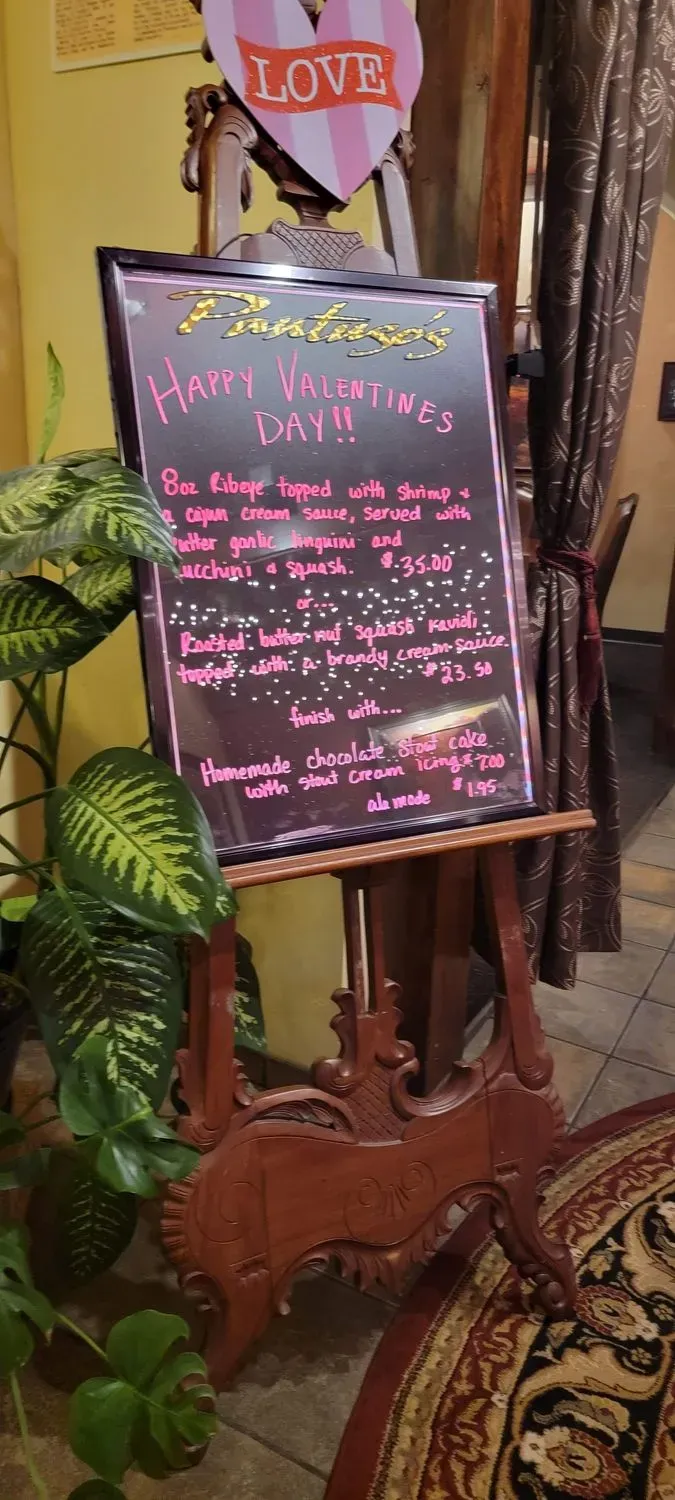 LOVE
Pantuso's
HAPPY VALENTINES
DAY!!
8oz Ribeye topped with shrimp &
a cajun cream sauce, served with
utter garlic linguini and
ucchini & squash. $35.00
or...
Roasted butter nut squash ravioli
topped with a brandy cream sauce.
$23.50
finish with...
Homemade chocolate Stout cake
with stout cream icing $7.00
ala mode $1.95